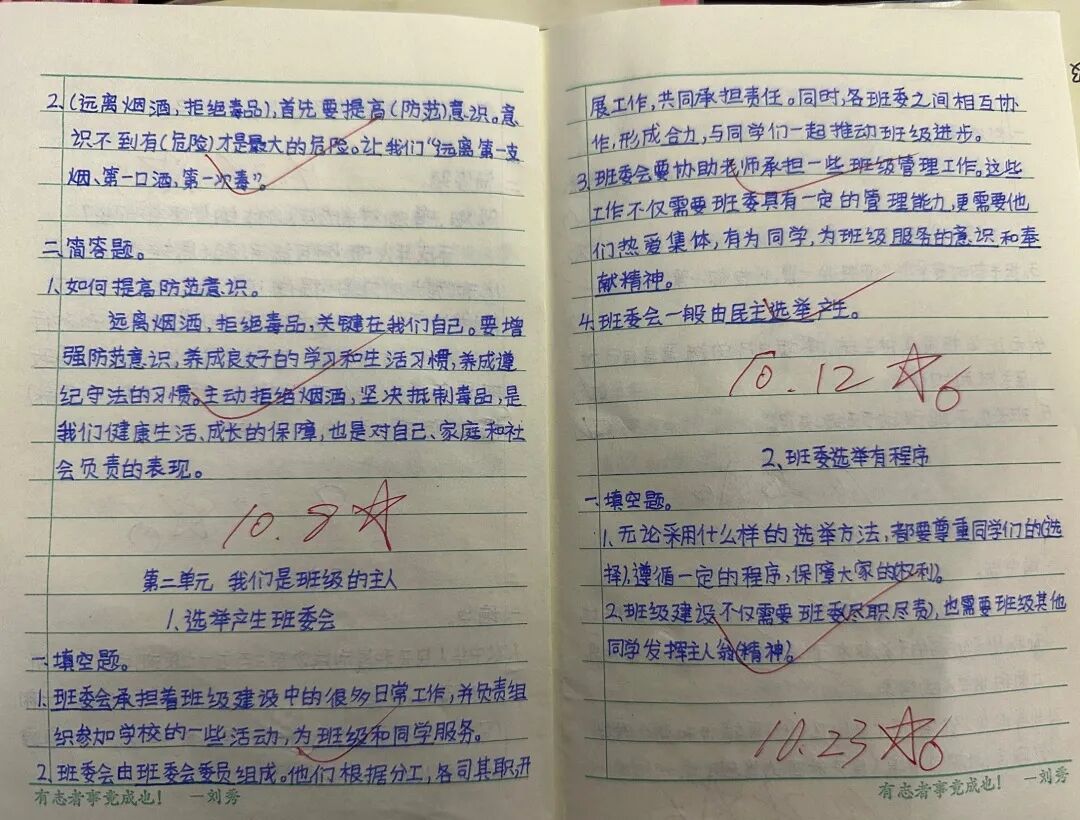 2.(远离烟酒,拒绝毒品),首先要提高(防范)意识。意
识不到有(危险)才是最大的危险。让我们“远离第一支
烟、第一口酒,第一次毒”。
二.简答题。
1.如何提高防范意识。
远离烟酒,拒绝毒品,关键在我们自己。要增
强防范意识,养成良好的学习和生活习惯,养成遵
纪守法的习惯,主动拒绝烟酒,坚决抵制毒品,是
我们健康生活、成长的保障,也是对自己、家庭和社
会负责的表现。
10.8
第二单元 我们是班级的主人
1.选举产生班委会
一.填空题。
1.班委会承担着班级建设中的很多日常工作,并负责组
织参加学校的一些活动,为班级和同学服务。
2.班委会由班委会委员组成。他们根据分工,各司其职,开
有志者事竟成也! —刘秀
展工作,共同承担责任。同时,各班委之间相互协
作,形成合力,与同学们一起推动班级进步。
3.班委会要协助老师承担一些班级管理工作。这些
工作不仅需要班委具有一定的管理能力,更需要他
们热爱集体,有为同学,为班级服务的意识和奉
献精神。
4.班委会一般由民主选举产生。
10.12 6
2.班委选举有程序
一.填空题。
1.无论采用什么样的选举方法,都要尊重同学们的(选
择),遵循一定的程序,保障大家的(权利)。
2.班级建设不仅需要班委(尽职尽责),也需要班级其他
同学发挥主人翁(精神)。
10.23 6
有志者事竟成也! —刘秀